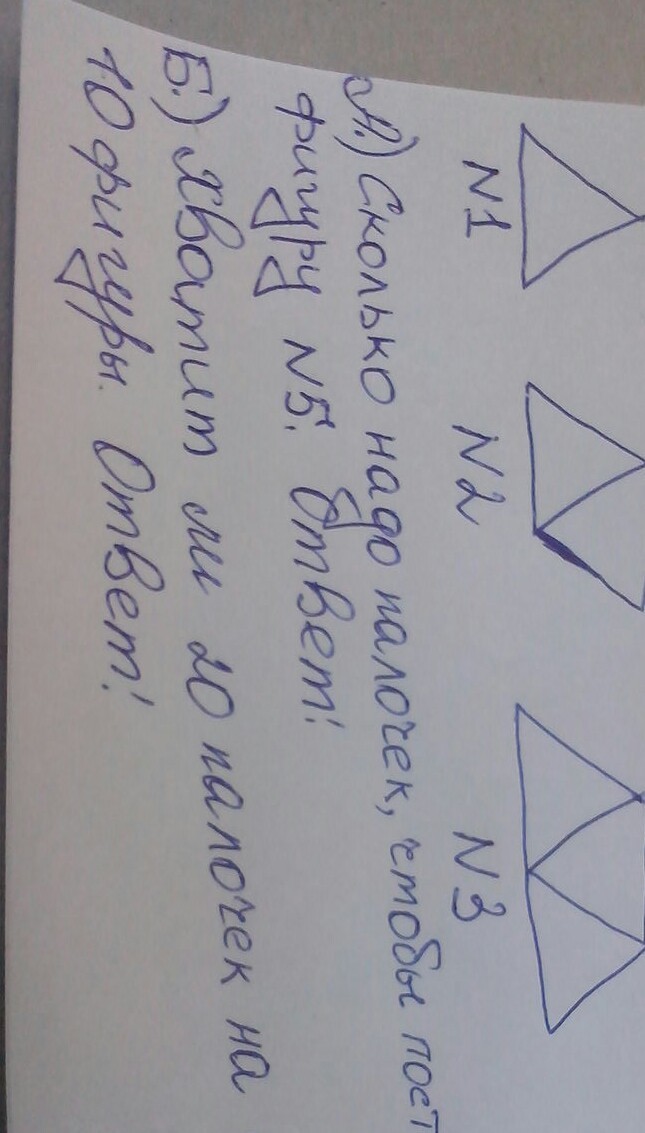 N1 N2 N3
А.) Сколько надо палочек, чтобы пост
фигуру N5. Ответ!
Б.) Хватит ли 20 палочек на
10 фигуры. Ответ!